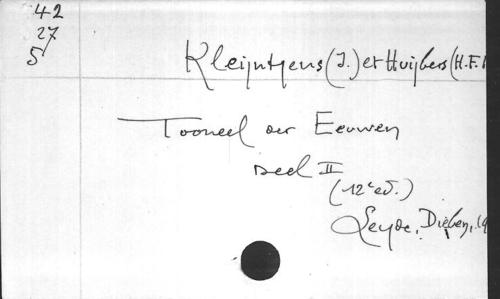 42
27
5
Kleijntjens (J.) et Huijbers (H.F.
Tooneel der Eeuwen
Deel II
(12e ed.)
Leyde, Dieben, 19